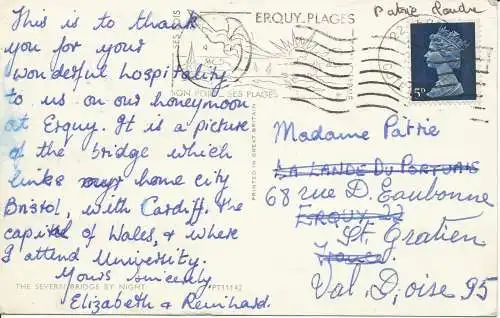 This is to thank
you for your
wonderful hospitality
to us on our honeymoon
at Erquy. It is a picture
of the bridge which
links my home city
Bristol, with Cardiff. The
capital of Wales, & where
I attend University.
Yours sincerely
Elizabeth & Reinhard.
THE SEVERN BRIDGE BY NIGHT
PT11142
PRINTED IN GREAT BRITAIN
ERQUY PLAGES
SES BOIS
SON PORT SES PLAGES
5D
Madame Patrie
LA LANDE DU
68 rue D. Eaubonne
ERQUY 22
St. Gratien
France
Val D'oise 95